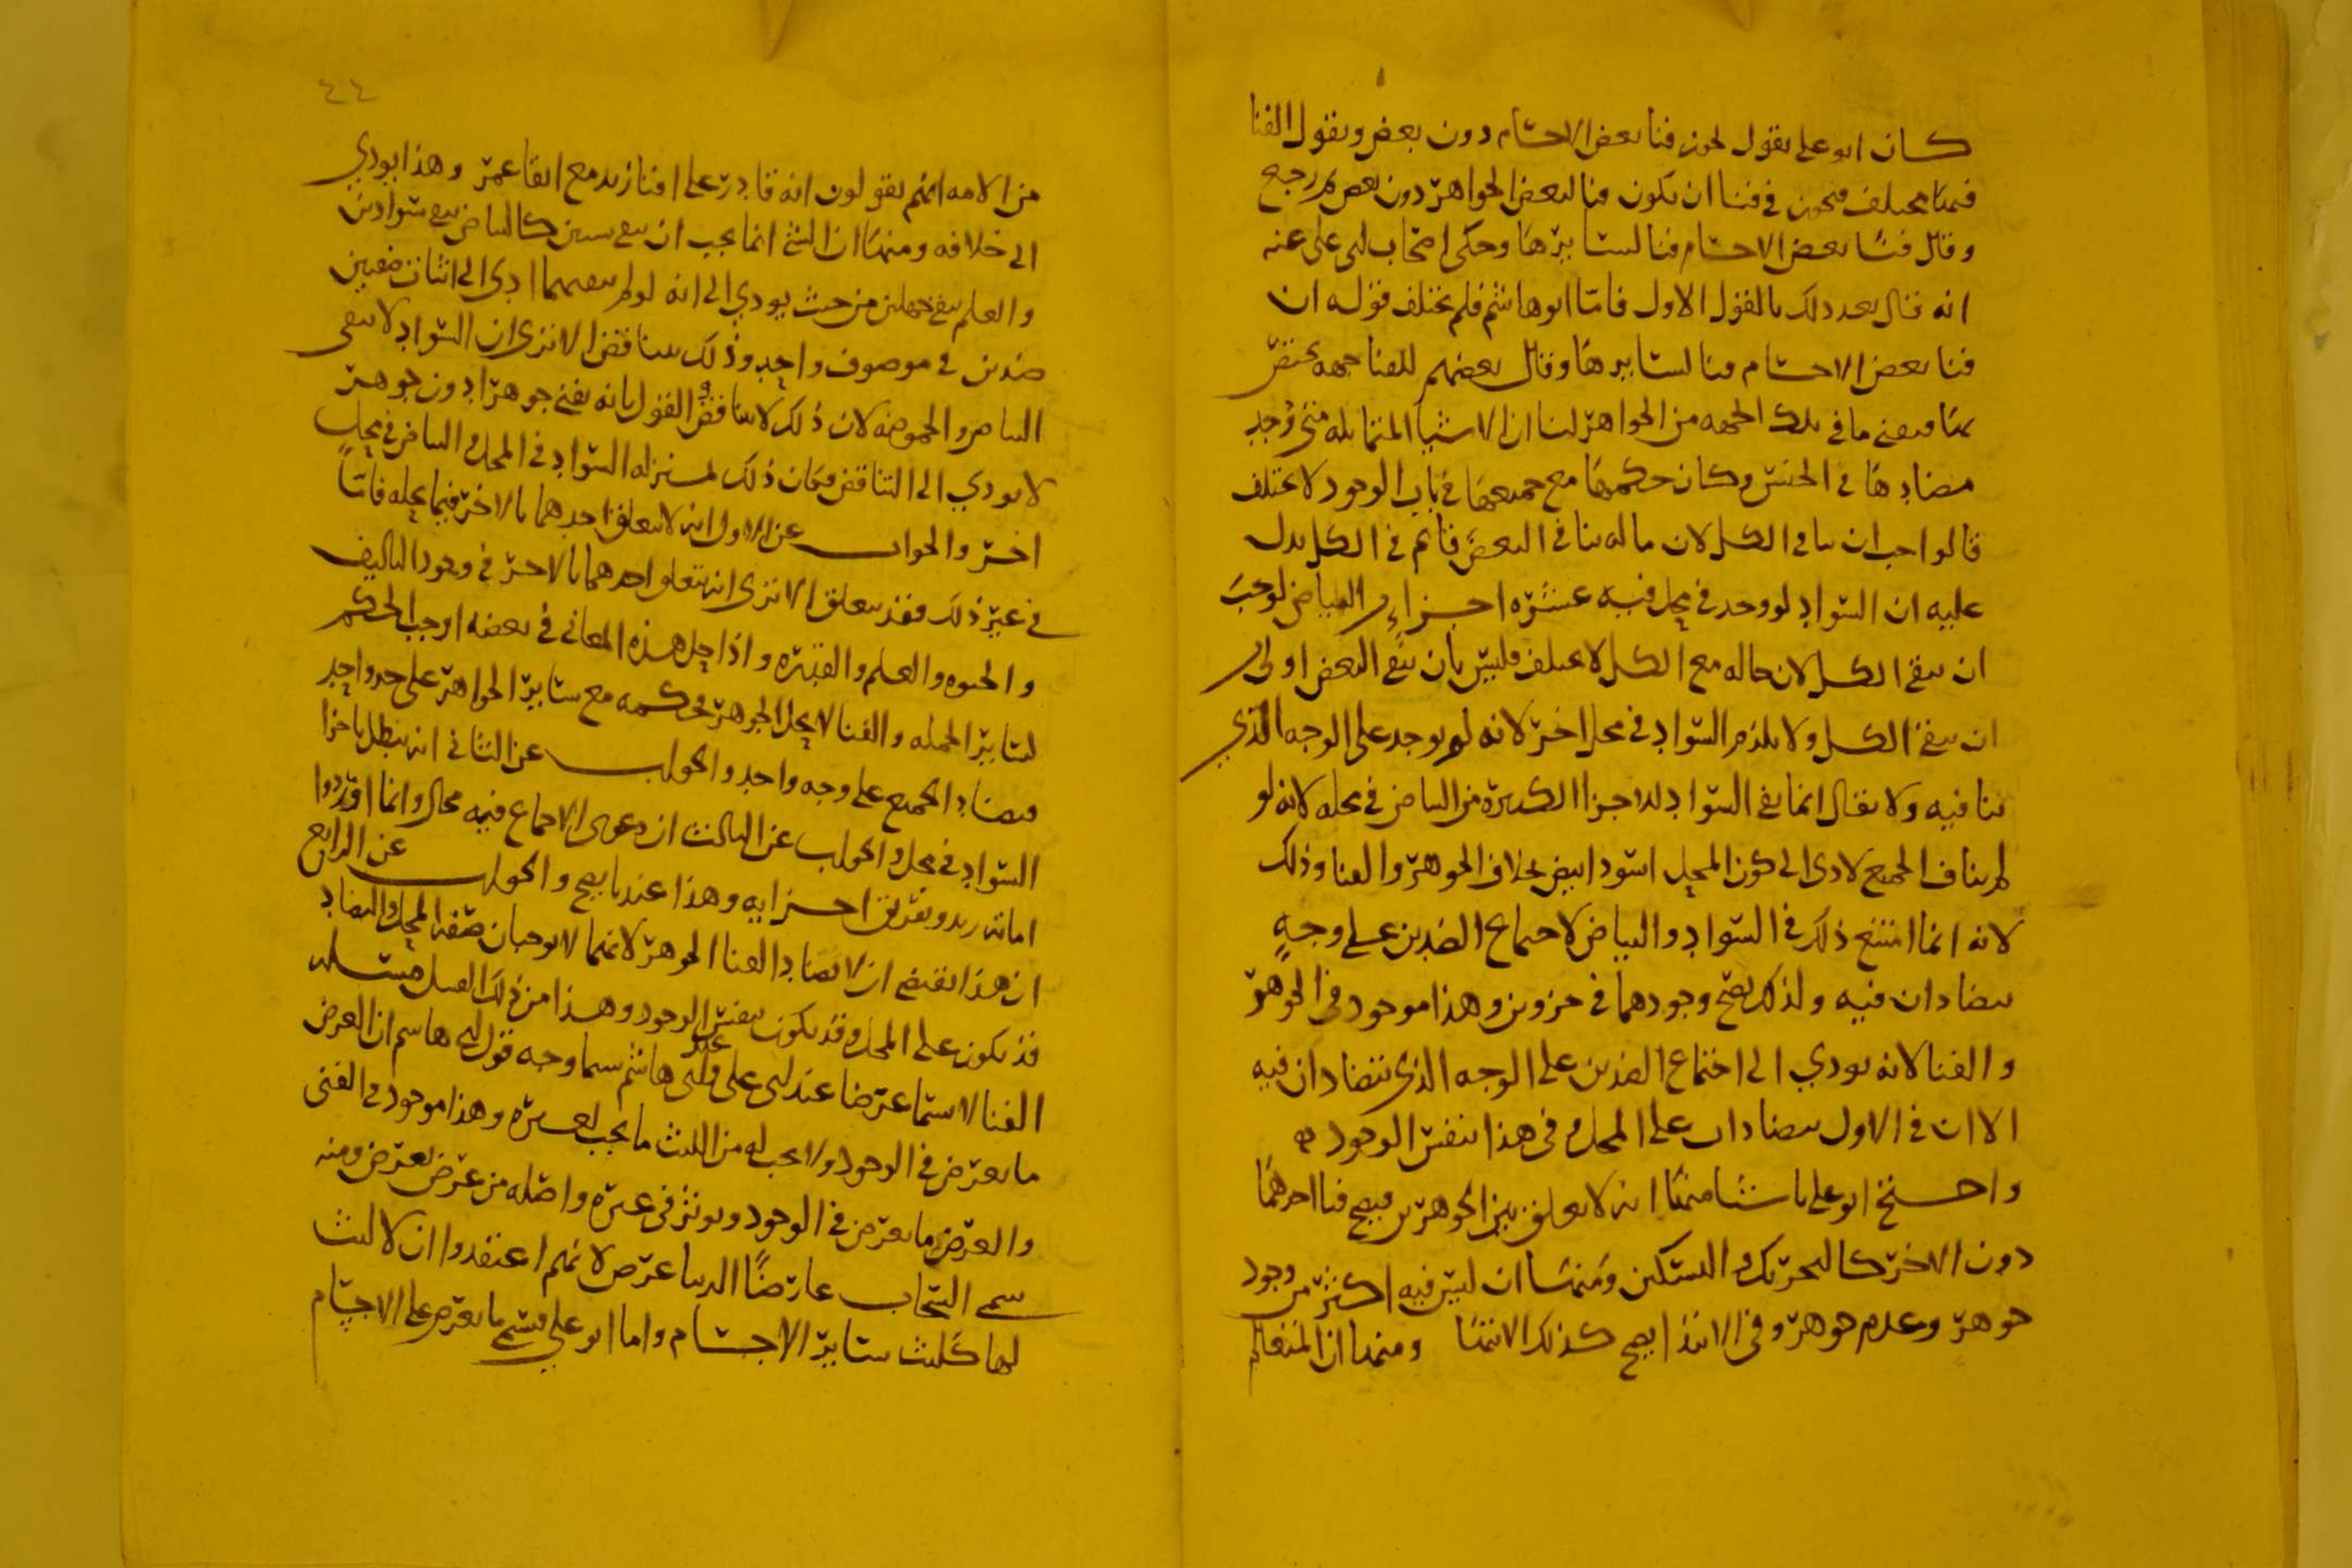 كان ابو علي يقول يجوز فنا بعض الاجسام دون بعض ويقول الفنا
فيما يختلف فيجوز في فنا ان يكون فنا لبعض الجواهر دون بعض ثم رجع
وقال فنا بعض الاجسام فنا لسايرها وحكى اصحاب ابي علي عنه
انه قال بعد ذلك بالقول الاول فاما ابو هاشم فلم يختلف قوله ان
فنا بعض الاجسام فنا لسايرها وقال بعضهم للفنا جهه يختص
بها فيفنى ما في تلك الجهه من الجواهر لنا ان الاشيا المتماثله متى وجد
مضادها في الجنس وكان حكمها مع جميعها في باب الوجود لا يختلف
فالواجب ان ينافي الكل لان ماله ينافي البعض قايم في الكل يدل
عليه ان السواد لو وجد في محل فيه عشره اجزاء من البياض لوجب
ان ينفي الكل لان حاله مع الكل لا يختلف فليس بان ينفي البعض اولى من
ان ينفي الكل ولا يلزم السواد في محل اخر لانه لم يوجد على الوجه الذي
ينافيه ولا يقال انما ينفي السواد الاجزا الكثيره من البياض في محله لانه لو
لم يناف الجميع لادى الى كون المحل اسود ابيض بخلاف الجوهر والفنا وذلك
لانه انما امتنع ذلك في السواد والبياض لاجتماع الضدين على وجهٍ
يتضادان فيه ولذلك يصح وجودهما في جزوين وهذا موجود في الجوهر
والفنا لانه يودي الى اجتماع الضدين على الوجه الذي يتضادان فيه
الا ان في الاول يتضادان على المحل وفي هذا بنفس الوجود
واحتج ابو علي باشيا منها انه لا تعلق بين الجوهرين فيصح فنا احدهما
دون الاخر كالتحريك والتسكين ومنها ان ليس فيه اكثر من وجود
جوهر وعدم جوهر وفي الابتدا يصح كذلك الانتها ومنها ان
٤٤
من الامه انهم يقولون انه قادر على افنا زيد مع ابقا عمر وهذا يودي
الى خلافه ومنها ان الشي انما يجب ان ينفي شيئين كالبياض ينفي سوادين
والعلم ينفي جهلين من حيث يودي الى انه لو لم ينفهما ادى الى اثبات
ضدين في موصوف واحد وذلك يتناقض الا ترى ان السواد لا ينفي
البياض والحموضه لان ذلك لا يتناقض والقول بانه يفني جوهرا دون جوهر
لا يودي الى التناقض فكان ذلك بمنزله السواد في المحل والبياض في محل
اخر والجواب عن الاول انه لا يتعلق احدهما بالاخر فيما يحله فاما
في غير ذلك فقد يتعلق الا ترى انه يتعلق احدهما بالاخر في وجود التاليف
والحيوه والعلم والقدره واذا حل هذه المعاني في بعضه اوجب الحكم
لساير الجمله والفنا لا يحل الجوهر فحكمه مع ساير الجواهر على حد واحد
فيضاد الجميع على وجه واحد والجواب عن الثاني انه يبطل باجزا
السواد في محل والجواب عن الثالث ان دعوى الاجماع فيه محال وانما اوردوا
اماته زيد وتفريق اجزايه وهذا عندنا يصح والجواب عن الرابع
ان هذا يقتضي ان لا يضاد الفنا الجوهر لانهما لا يوجبان صفه للمحل والتضاد
قد يكون على المحل وقد يكون بنفس الوجود وهذا من ذلك القبيل مسئله
الفنا لا يسما عرضا عند ابي علي وعند ابي هاشم يسما وجه قول ابي هاشم ان العرض
ما يعرض في الوجود ولا يجب له من اللبث ما يجب لغيره وهذا موجود في الفنى
والعرض ما يعرض في الوجود ويوثر في غيره واصله من عرض يعرض ومنه
سمي السحاب عارضاً الدنيا عرض لانهم اعتقدوا ان لا لبث
لها كلبث ساير الاجسام واما ابو علي فيسمي ما يعرض على الاجسام